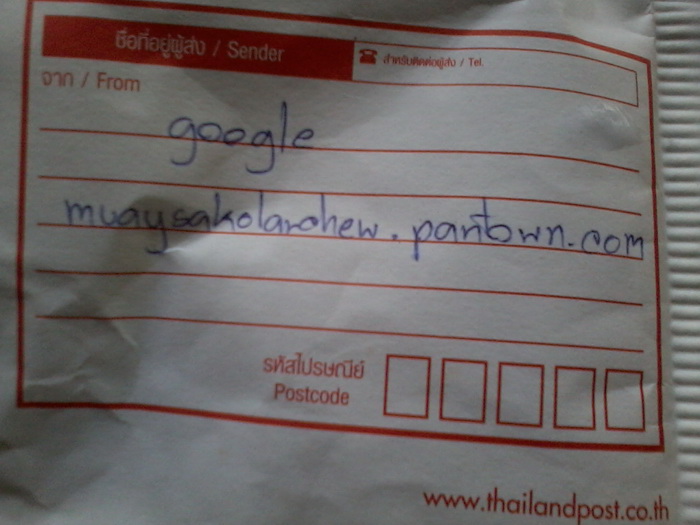 ชื่อที่อยู่ผู้ส่ง / Sender
☎ สำหรับติดต่อผู้ส่ง / Tel.
จาก / From
google
muaysakolarchew.pantown.com
รหัสไปรษณีย์
Postcode
www.thailandpost.co.th